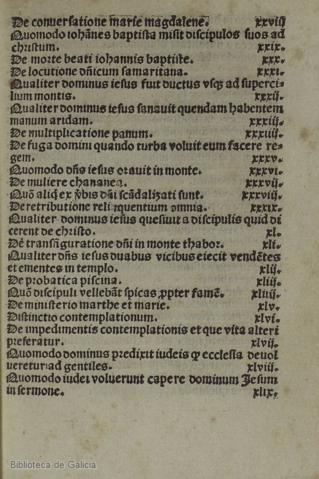 De conuersatione marie magdalene. xxviij
Quomodo iohānes baptista misit discipulos suos ad
christum. xxix.
De morte beati iohannis baptiste. xxx.
De locutione dn̄icum samaritana. xxxi.
Qualiter dominus iesus fuit ductus vsq; ad superci-
lium montis. xxxij.
Qualiter dominus iesus sanauit quendam habentem
manum aridam. xxxiij.
De multiplicatione panum. xxxiiij.
De fuga domini quando turba voluit eum facere re-
gem. xxxv.
Quomodo dn̄s iesus orauit in monte. xxxvi.
De muliere chananea. xxxvij.
Quō aliq̄ ex v̄bis dn̄i scādalizati sunt. xxxviij.
De retributione reli quentium omnia. xxxix.
Qualiter dominus iesus quesiuit a discipulis quid di
cerent de christo. xl.
De trans̄figuratione dn̄i in monte thabor. xli.
Qualiter dn̄s iesus duabus vicibus eiecit vendētes
et ementes in templo. xlij.
De probatica piscina. xliij.
Quō discipuli vellebāt spicas ꝓpter famē. xliiij.
De ministerio marthe et marie. xlv.
Distinctio contemplationum. xlvi.
De impedimentis contemplationis et que vita alteri
preferatur. xlvij.
Quomodo dominus predixit iudeis ꝙ ecclesia deuol
ueretur ad gentiles. xlviij.
Quomodo iudei voluerunt capere dominum Jesum
in sermone. xlix.
Biblioteca de Galicia